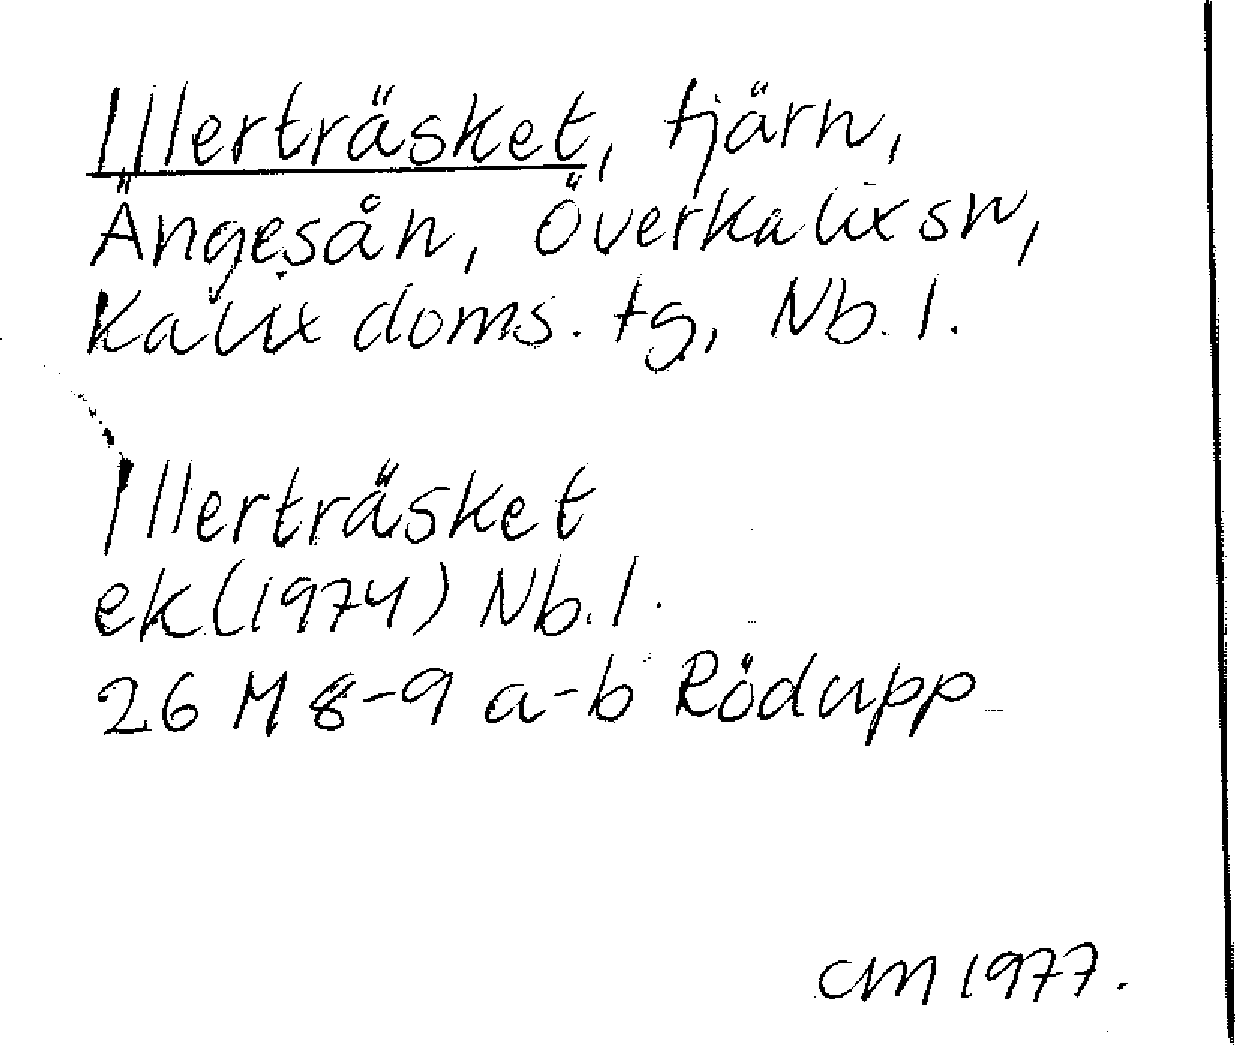 Illerträsket, tjärn,
Ängesån, Överkalix sn,
Kalix doms. tg, Nb. l.
Illerträsket
ek (1974) Nb. l.
26 M 8-9 a-b Rödupp
CM 1977.